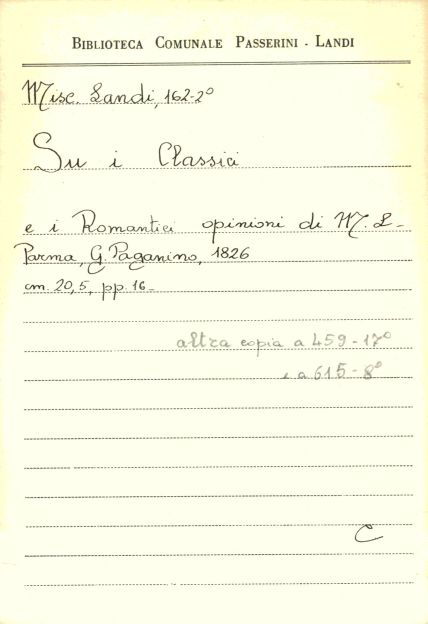 BIBLIOTECA COMUNALE PASSERINI - LANDI
Misc. Landi, 162-2º
Su i Classici
e i Romantici opinioni di M. L-
Parma, G. Paganino, 1826
cm. 20,5, pp. 16-
altra copia a 459-17º
e a 615-8º
C